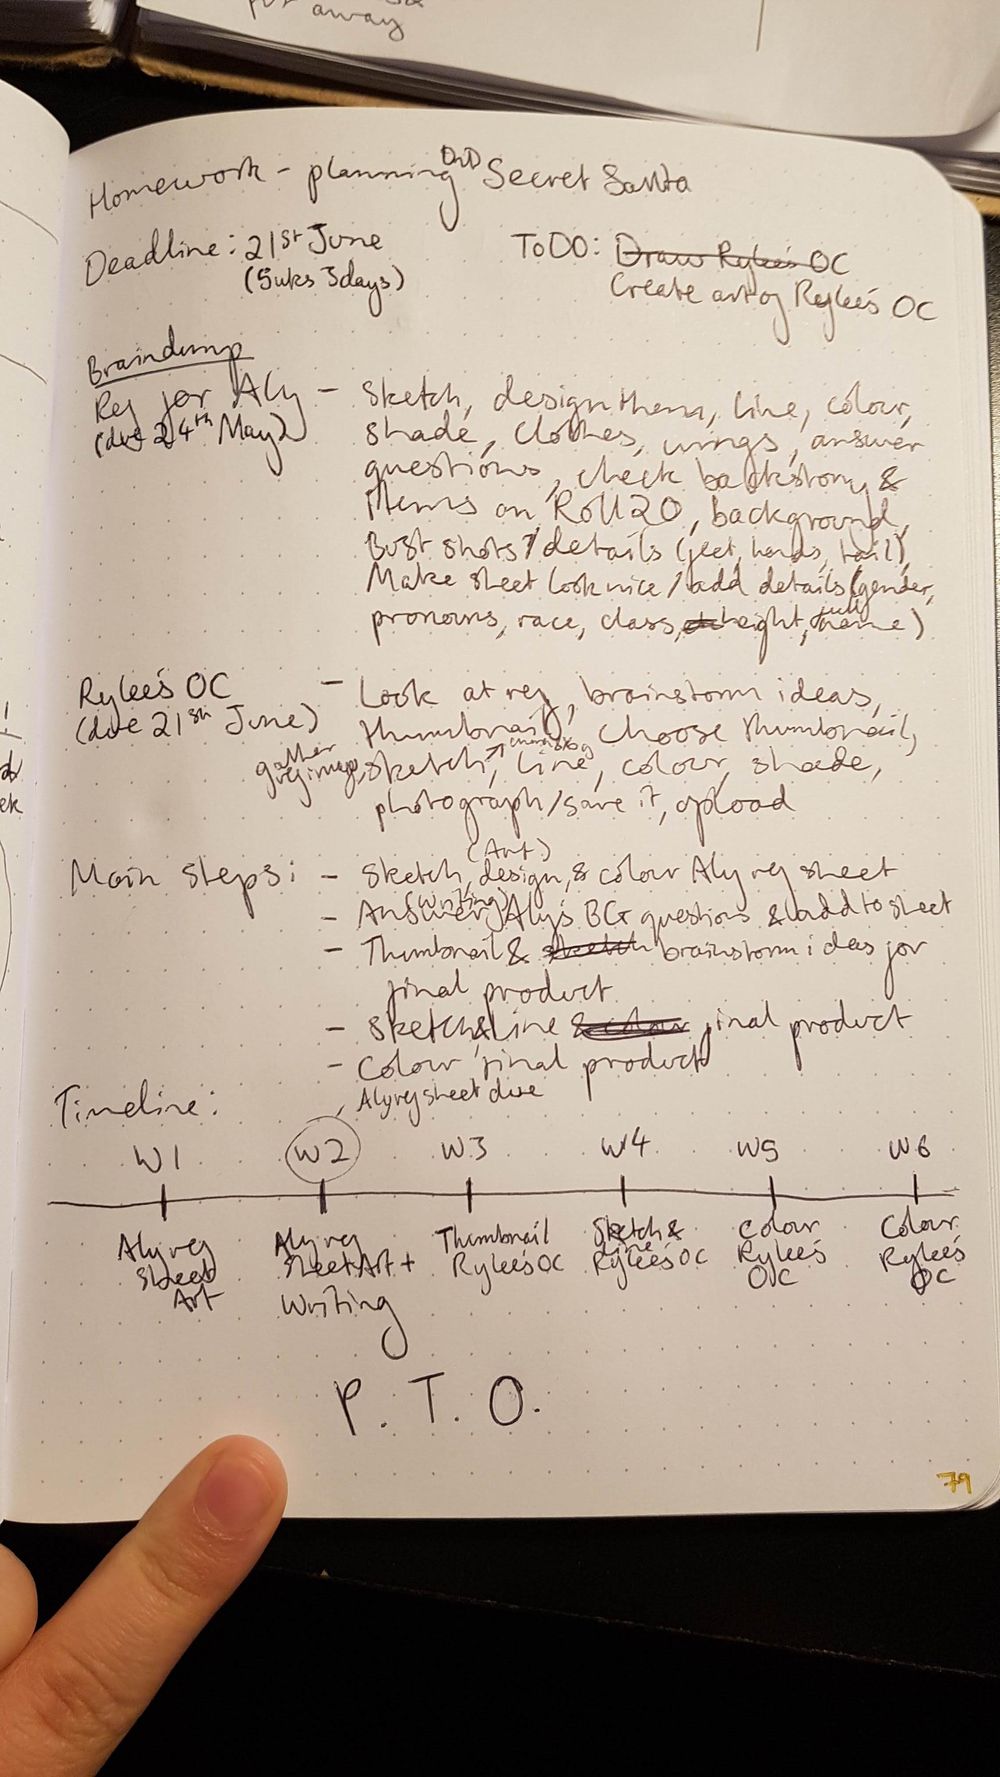 away
Homework - planning DnD Secret Santa
Deadline: 21st June
(5wks 3days)
ToDO: Draw Rylee's OC
Create art of Rylee's OC
Braindump
Ref for Aly
(due 24th May)
- Sketch, design them, line, colour,
shade, clothes, wings, answer
questions, check backstory &
items on Roll20, background,
Bust shots / details (feet, hands, tail),
Make sheet look nice / add details (gender,
pronouns, race, class, height, full name)
Rylee's OC
(due 21st June)
- Look at ref, brainstorm ideas,
thumbnail, choose thumbnail,
gather ref images, sketch, line, colour, shade,
photograph/save it, upload
Main steps: - Sketch, design, & colour Aly ref sheet (Art)
- Answer Aly's BG questions & add to sheet (writing)
- Thumbnail & sketch brainstorm ideas for
final product
- Sketch & Line & colour final product
- Colour final product
Timeline:
Aly ref sheet due
W1 W2 W3 W4 W5 W6
Aly ref sheet Art
Aly ref sheet Art + Writing
Thumbnail Rylee's OC
Sketch & line Rylee's OC
Colour Rylee's OC
Colour Rylee's OC
P. T. O.
79